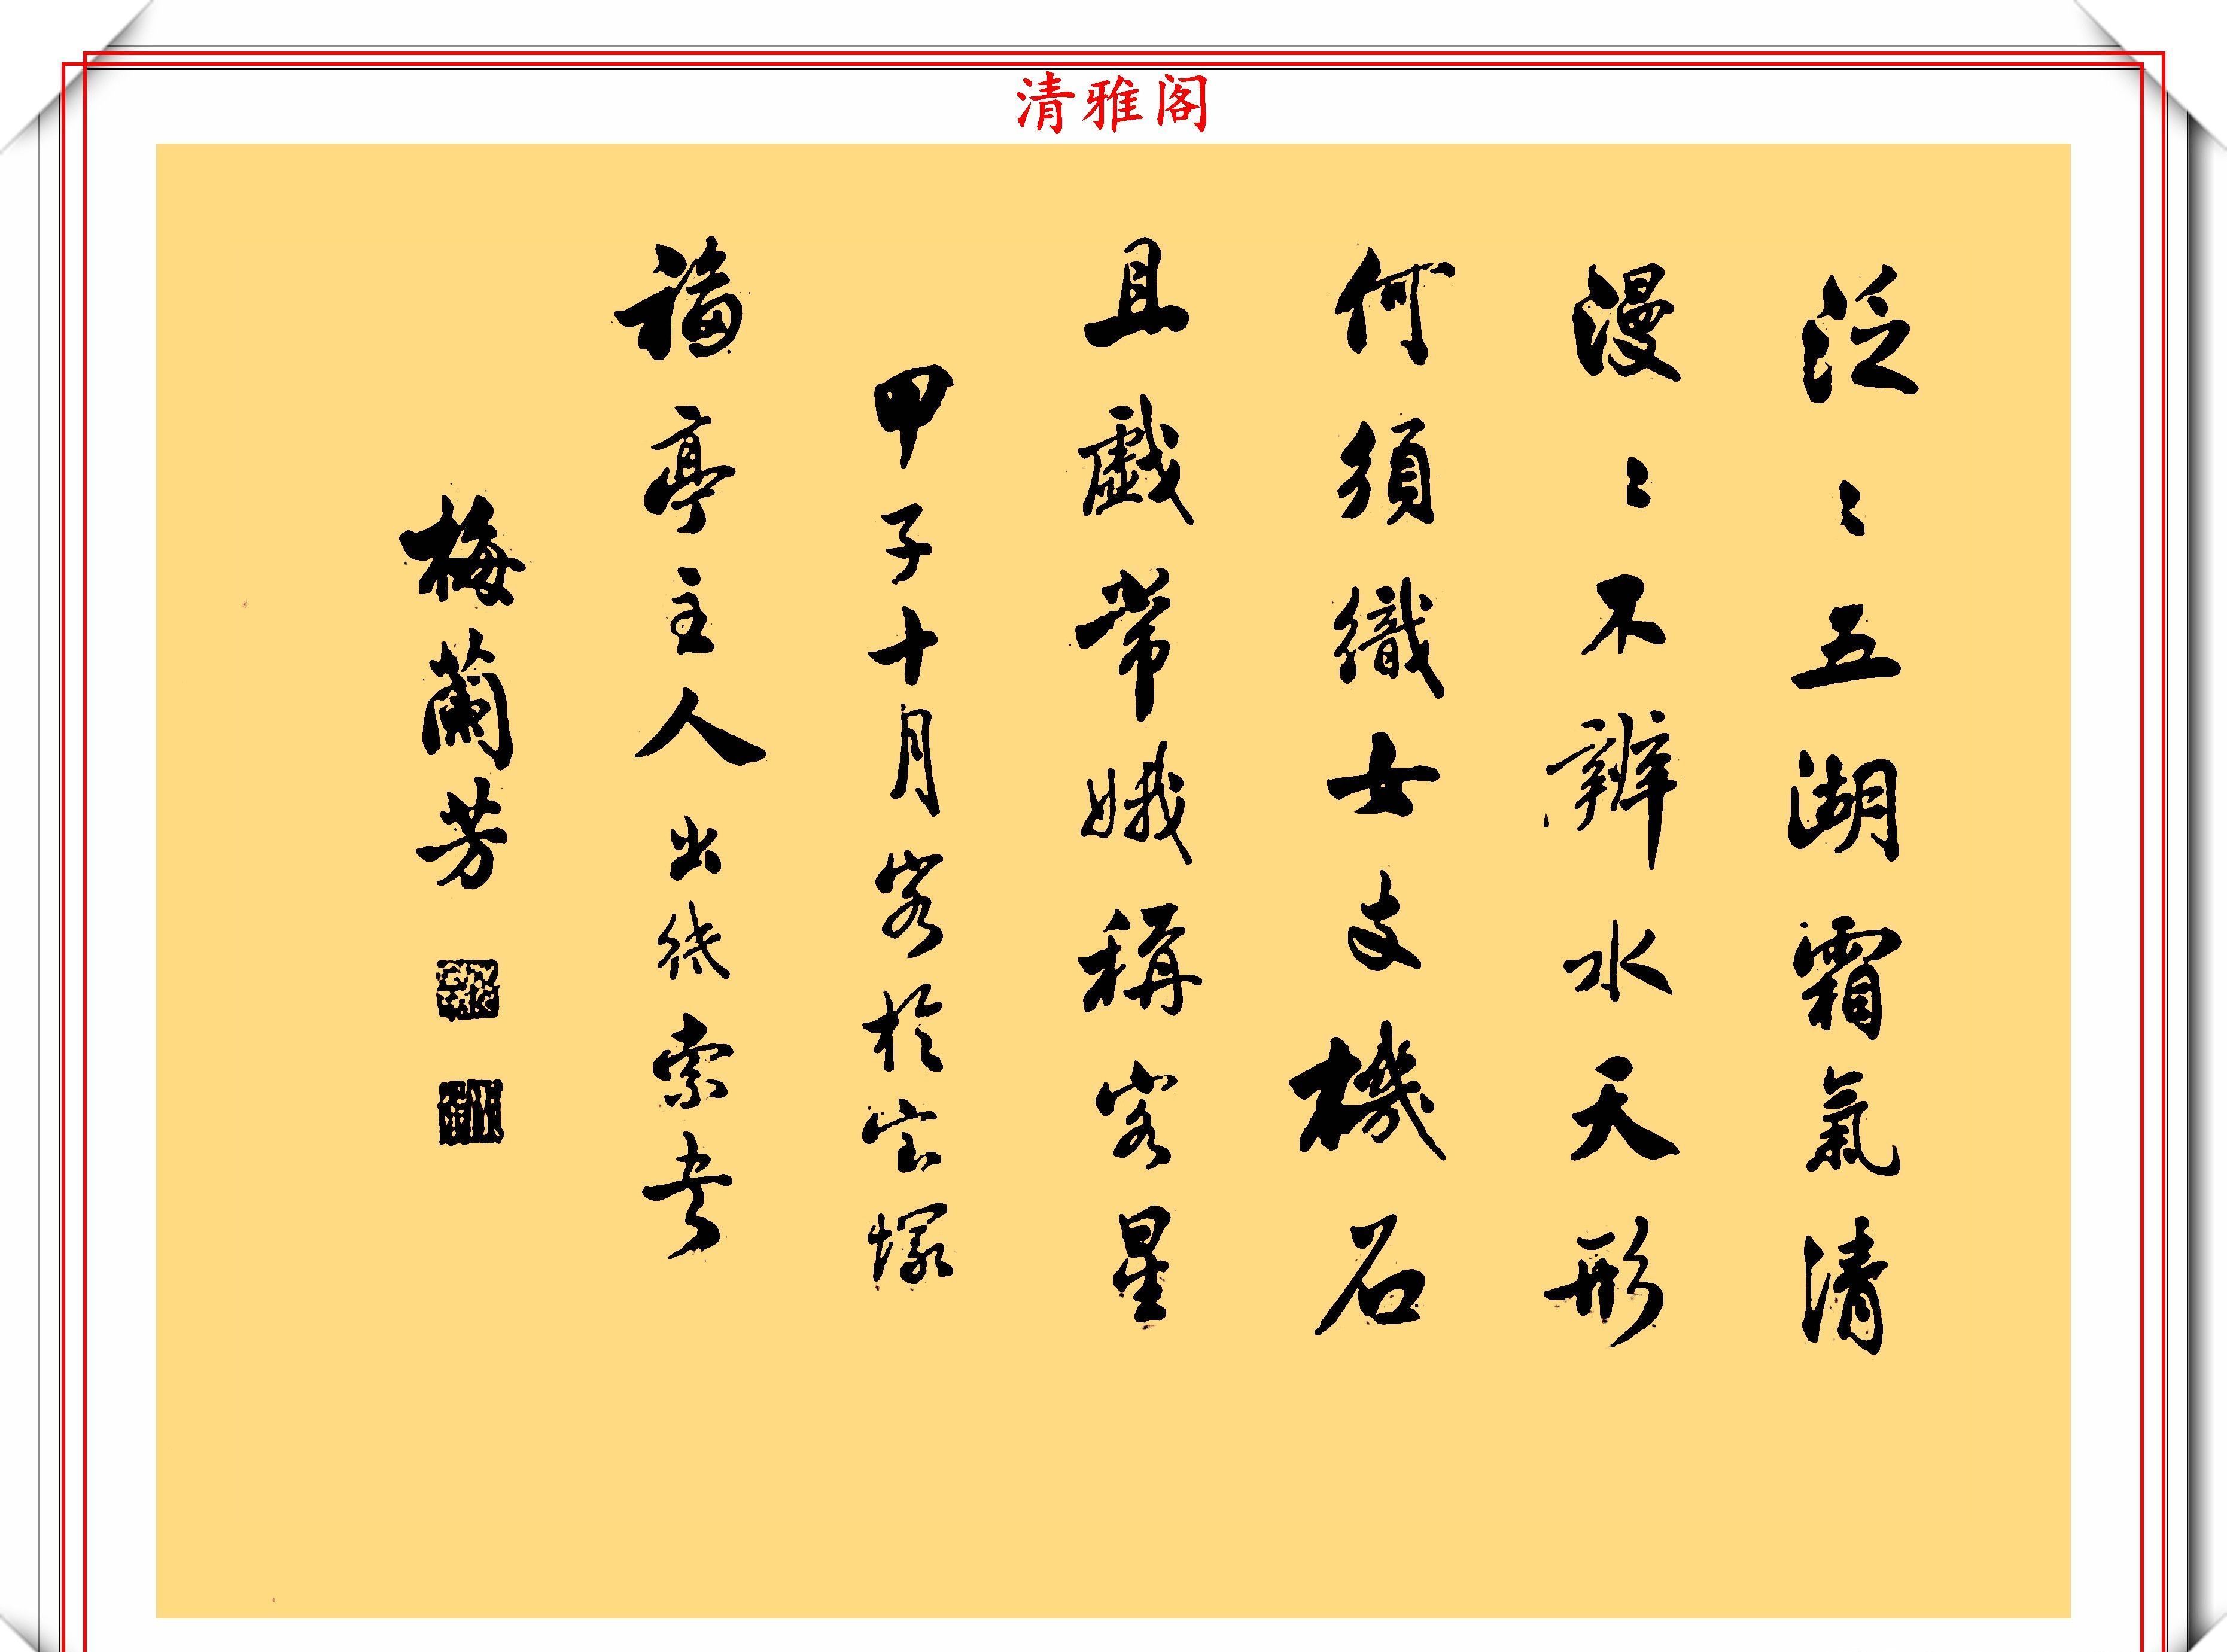 清雅阁
泛〻五湖霜氣清
漫〻不辨水天形
何須織女支機石
且戲常娥稱客星
甲子十月客於宝塚
福亭主人出紙索書
梅蘭芳